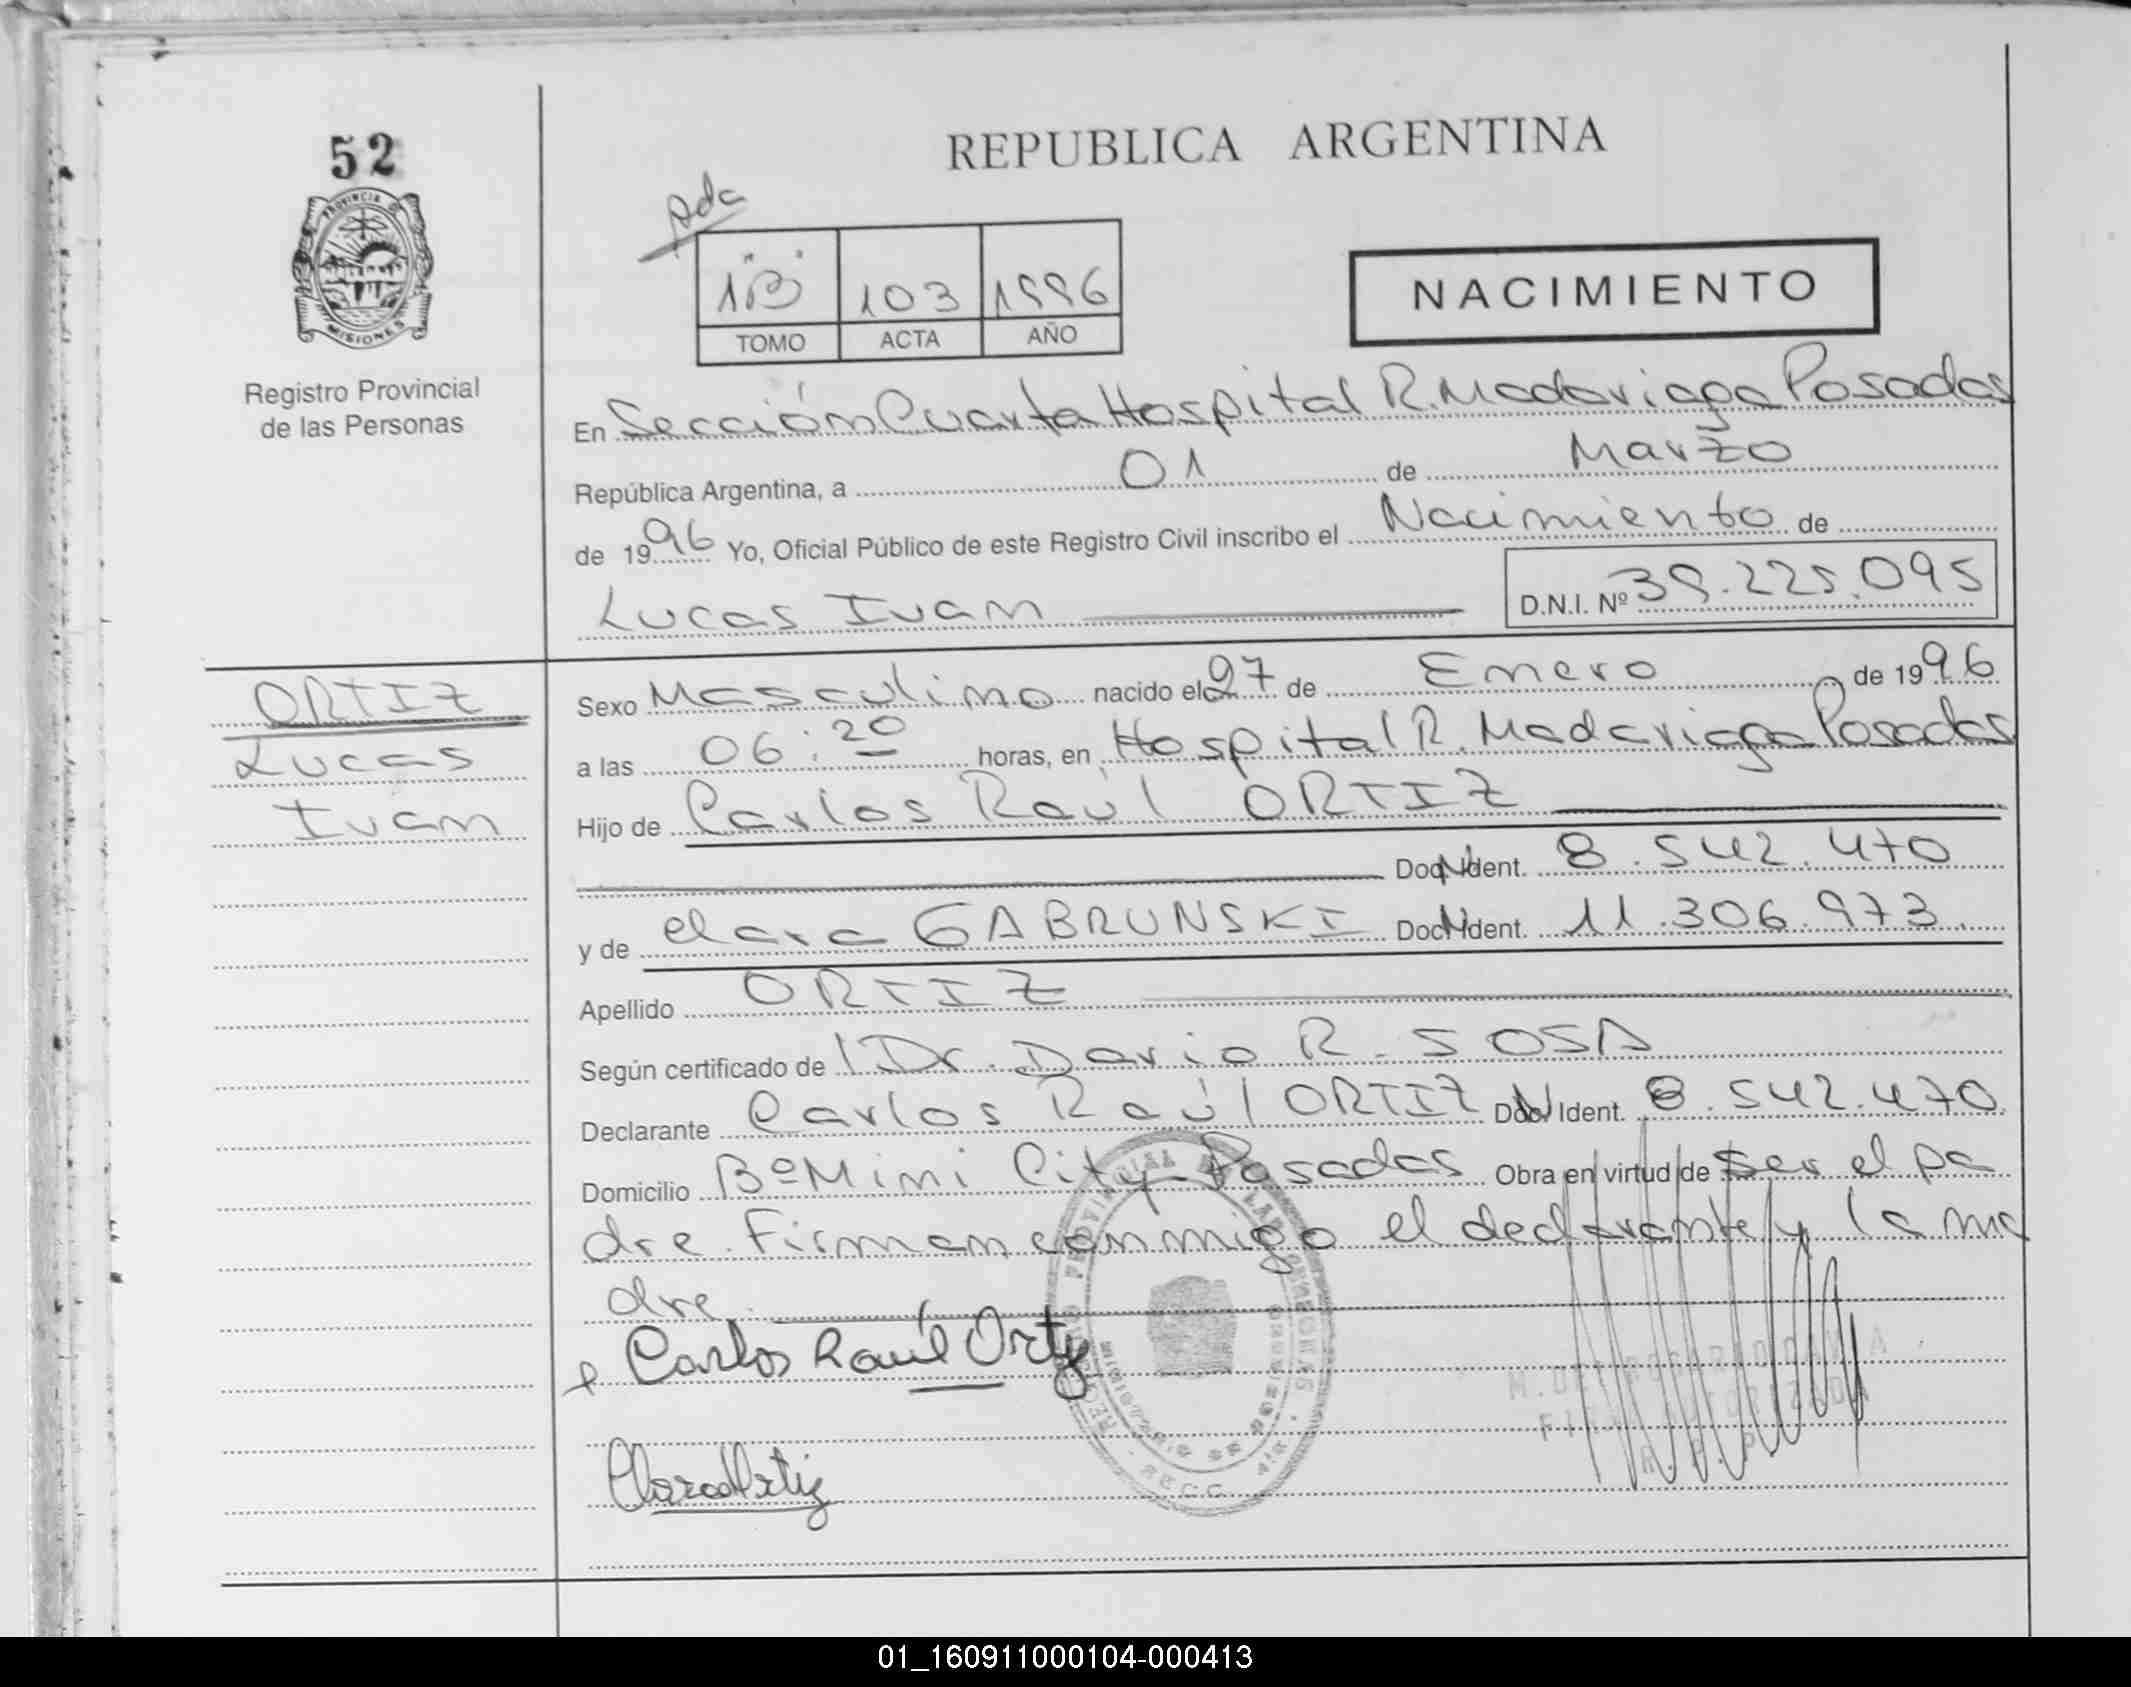 52
PROVINCIA DE
MISIONES
Registro Provincial
de las Personas
REPUBLICA ARGENTINA
1"B" 103 1996
TOMO ACTA AÑO
NACIMIENTO
En Sección Cuarta Hospital R. Madariaga Posadas
República Argentina, a 01 de Marzo
de 1996 Yo, Oficial Público de este Registro Civil inscribo el Nacimiento de
Lucas Ivan D.N.I. Nº 39.225.095
ORTIZ
Lucas
Ivan
Sexo Masculino nacido el 27 de Enero de 1996
a las 06:20 horas, en Hospital R. Madariaga Posadas
Hijo de Carlos Raúl ORTIZ
Doc. Ident. 8.542.470
y de Clara GABRUNSKI Doc. Ident. 11.306.973.
Apellido ORTIZ
Según certificado de l Dr. Dario R. SOSA
Declarante Carlos Raúl ORTIZ Doc. Ident. 8.542.470
Domicilio Bº Mini City-Posadas Obra en virtud de ser el pa
dre. Firman conmigo el declarante y la ma
dre.
Carlos Raúl Ortiz
Clara Ortiz
01_160911000104-000413